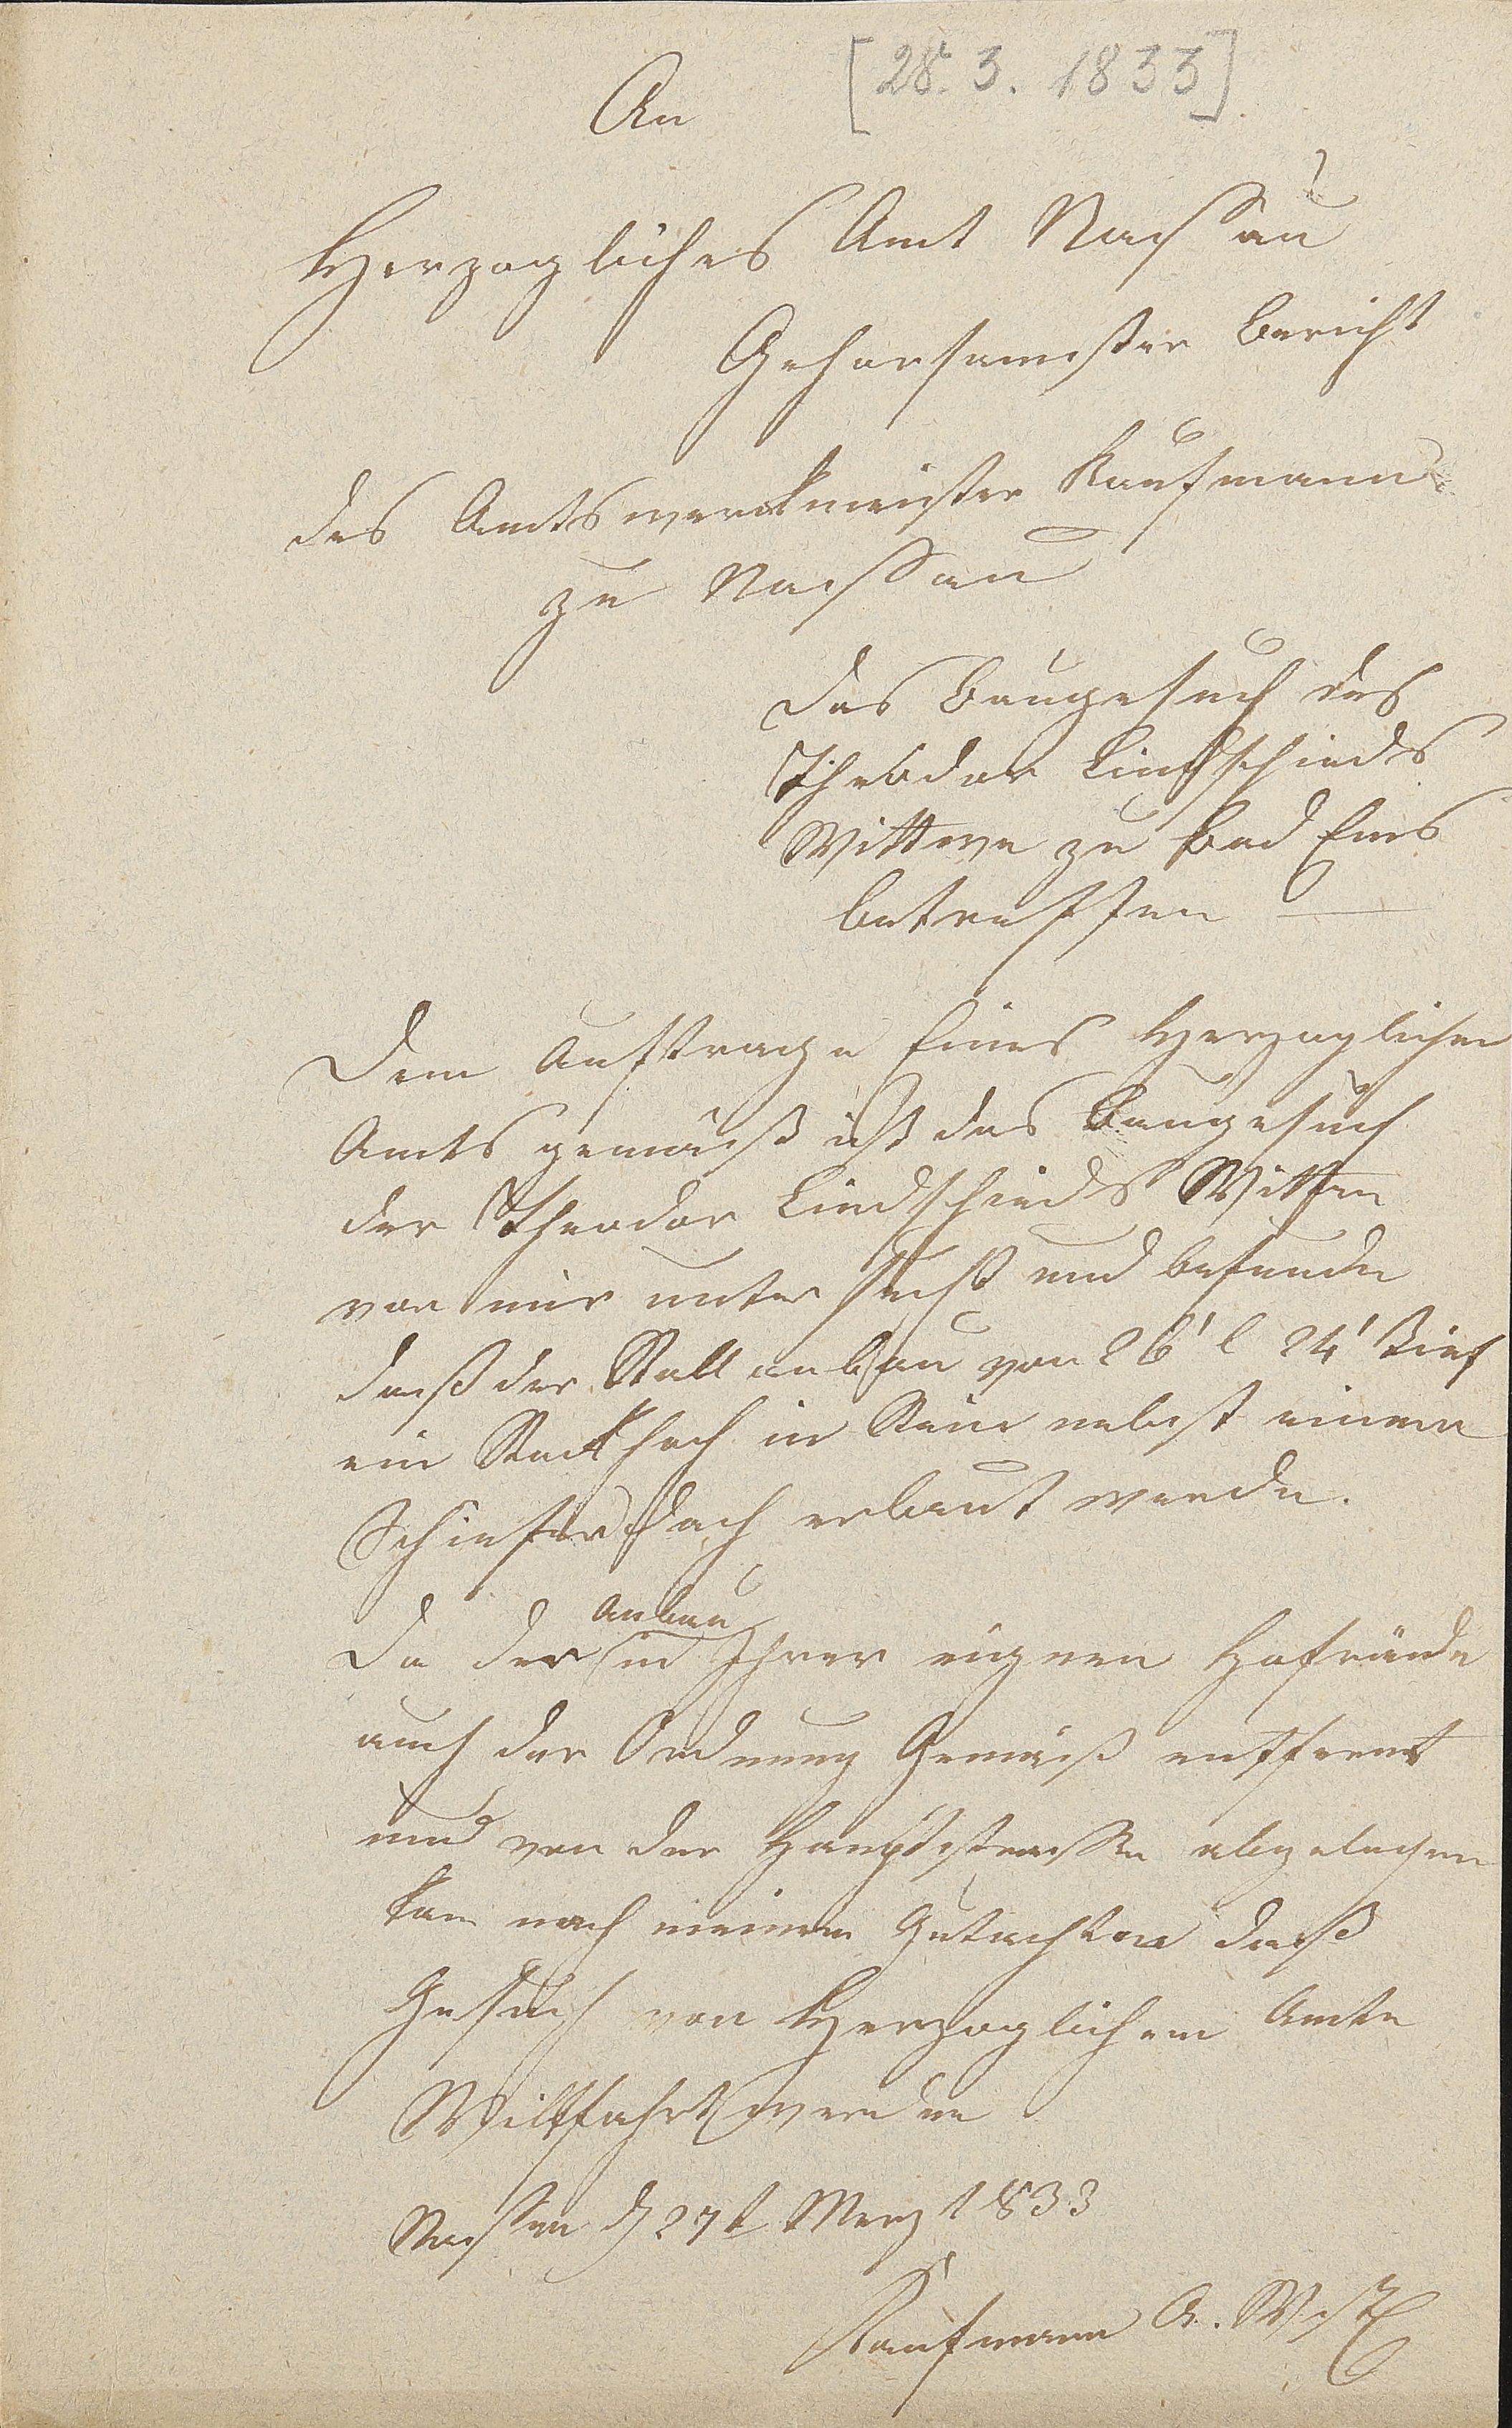 An [28. 3. 1833]
Herzogliches Amt Nassau
Gehorsamster Bericht
des Amtswerkmeister Kaufmann
zu Nassau
Das Baugesuch des
Theodor Lindscheids
Wittwe zu Bad Ems
betreffen —
Dem Auftrage Eines Herzoglichen
Amts gemäß ist das Baugesuch
der Theodor Lindscheids Wittwe
von mir untersucht und befunden
daß der Stallanbau von 26' l 24' Tief
ein Stockhoch in Stein nebst einem
Schieferdach erbaut werde.
Anbau
Da der in Ihrer eignen Hofräude
auch der Ordnung Gemäß entfernt
und von der Hauptstrasse abgelegen
kan nach meinem Gutachten daß
Gesuch von Herzoglichem Amte
Willfahrt werden
Nassau d 27t Merz 1833
Kaufmann A. W